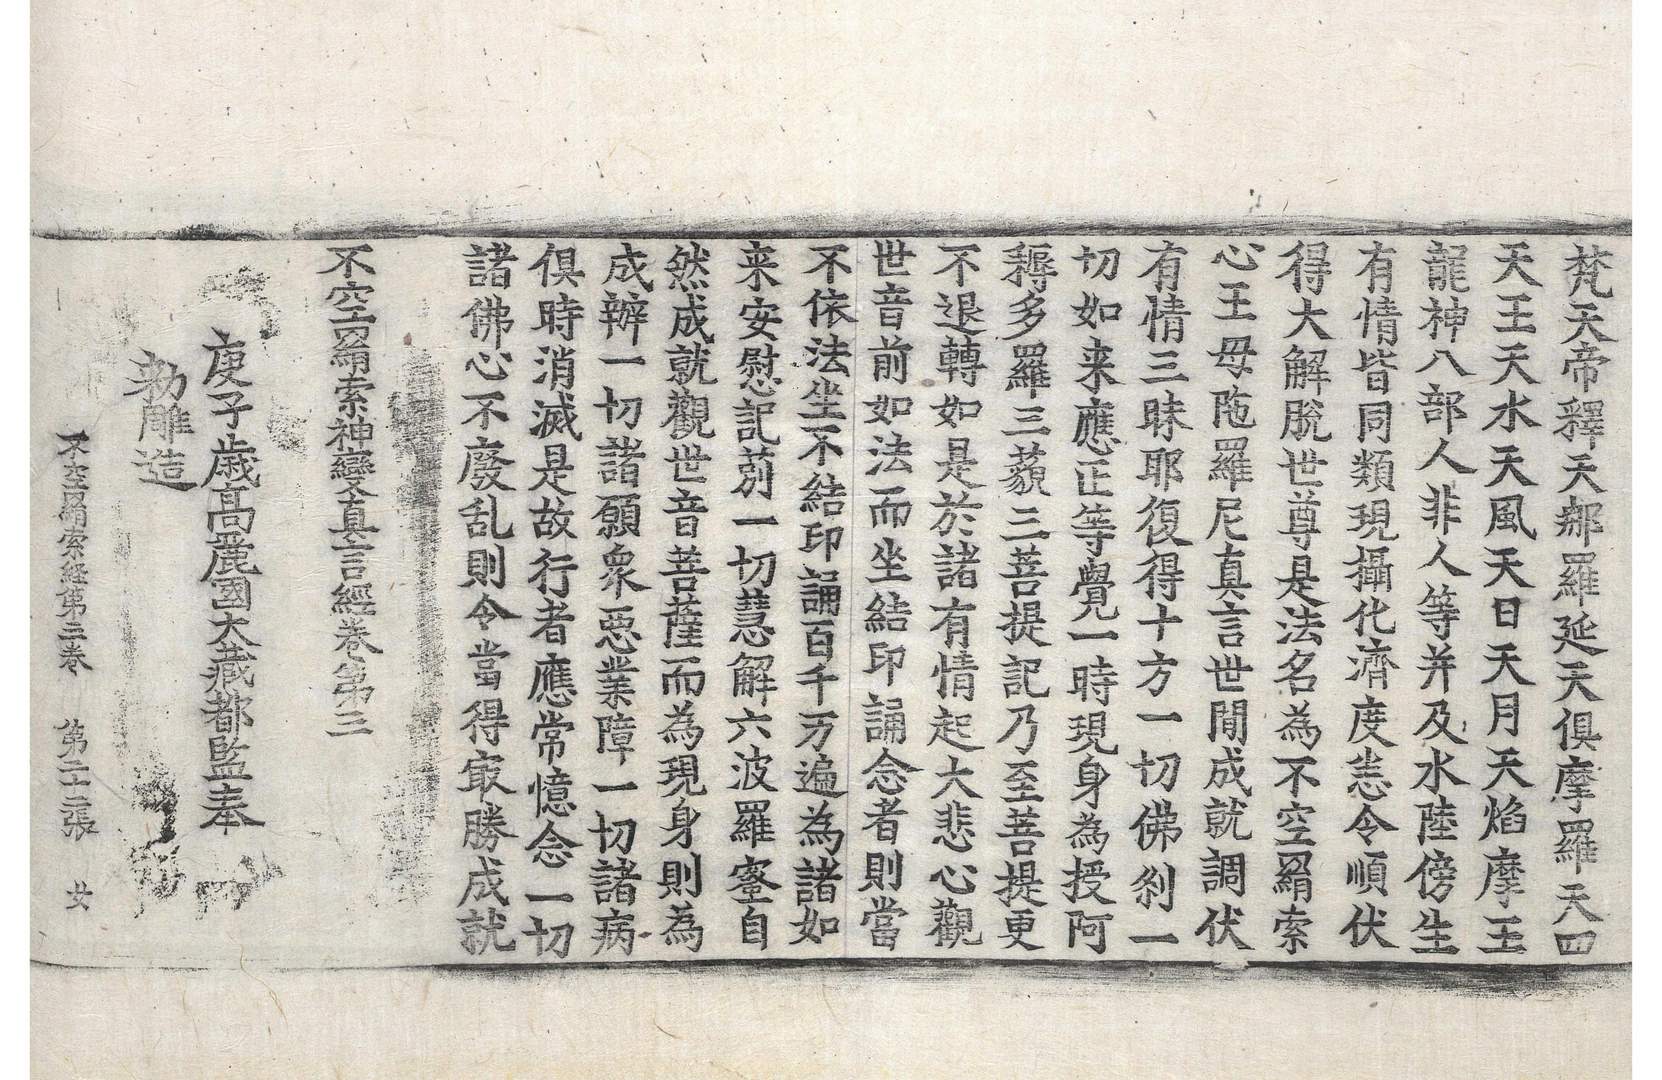 梵天帝釋天那羅延天俱摩羅天四
天王天水天風天日天月天焰摩王
龍神八部人非人等并及水陸傍生
有情皆同類現攝化濟度恙令順伏
得大解脫世尊是法名為不空羂索
心王母陁羅尼真言世間成就調伏
有情三昧耶復得十方一切佛刹一
切如来應正等覺一時現身為授阿
耨多羅三藐三菩提記乃至菩提更
不退轉如是於諸有情起大悲心觀
世音前如法而坐結印誦念者則當
不依法坐不結印誦百千万遍為諸如
来安慰記莂一切慧解六波羅蜜自
然成就觀世音菩薩而為現身則為
成辦一切諸願衆惡業障一切諸病
俱時消滅是故行者應常憶念一切
諸佛心不廢乱則令當得㝡勝成就
不空羂索神變真言經卷第三
庚子歲高麗國大藏都監奉
勑雕造
不空羂索経第三卷 第二十二張 女